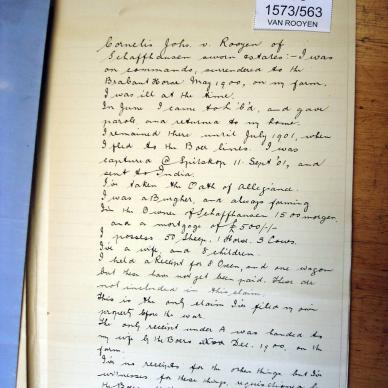 1573/563
VAN ROOYEN
Cornelis Joh. v. Rooyen of
Schaffhausen sworn states:- I was
on commando, surrendered to the
Brabant Horse May 1900, on my farm,
I was ill at the time.
In June I came to and gave
parole and returned to my home.
I remained there until July 1901, when
I fled to the Boer lines. I was
captured @ Spitskop 11 Sept '01, and
sent to India.
I've taken the Oath of Allegiance.
I was a Burgher, and always farming
I'm the Owner of Schaffhausen 1500 morgen,
and a mortgage of £500/-/-
I possess 50 Sheep, 1 Horse, 3 Cows.
I've a wife and 8 children.
I held a Receipt for 8 Oxen, and one wagon
but these have not yet been paid. These are
not included in this claim.
This is the only claim I've filed in my own
property before the war.
The only receipt under A was handed to
my wife by the Boers Dec. 1900, on the
farm.
I've no receipts for the other things but I've
witnesses for these things, requisitioned
the Boers